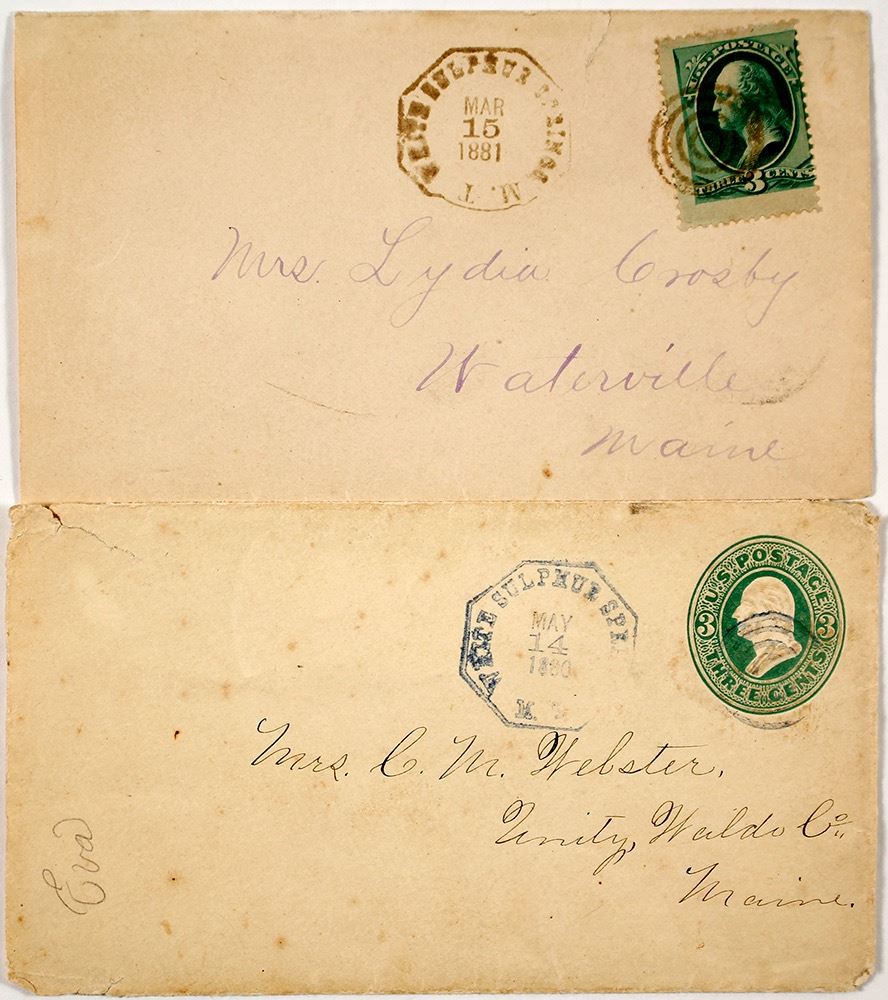 WHITE SULPHUR SPRINGS M. T.
MAR
15
1881
U.S. POSTAGE
THREE 3 CENTS
Mrs. Lydia Crosby
Waterville
Maine
WHITE SULPHUR SPR
M. T.
MAY
14
1880
U.S. POSTAGE
3 3
THREE CENTS
Mrs. C. M. Webster,
Unity, Waldo Co.,
Maine.
Eva